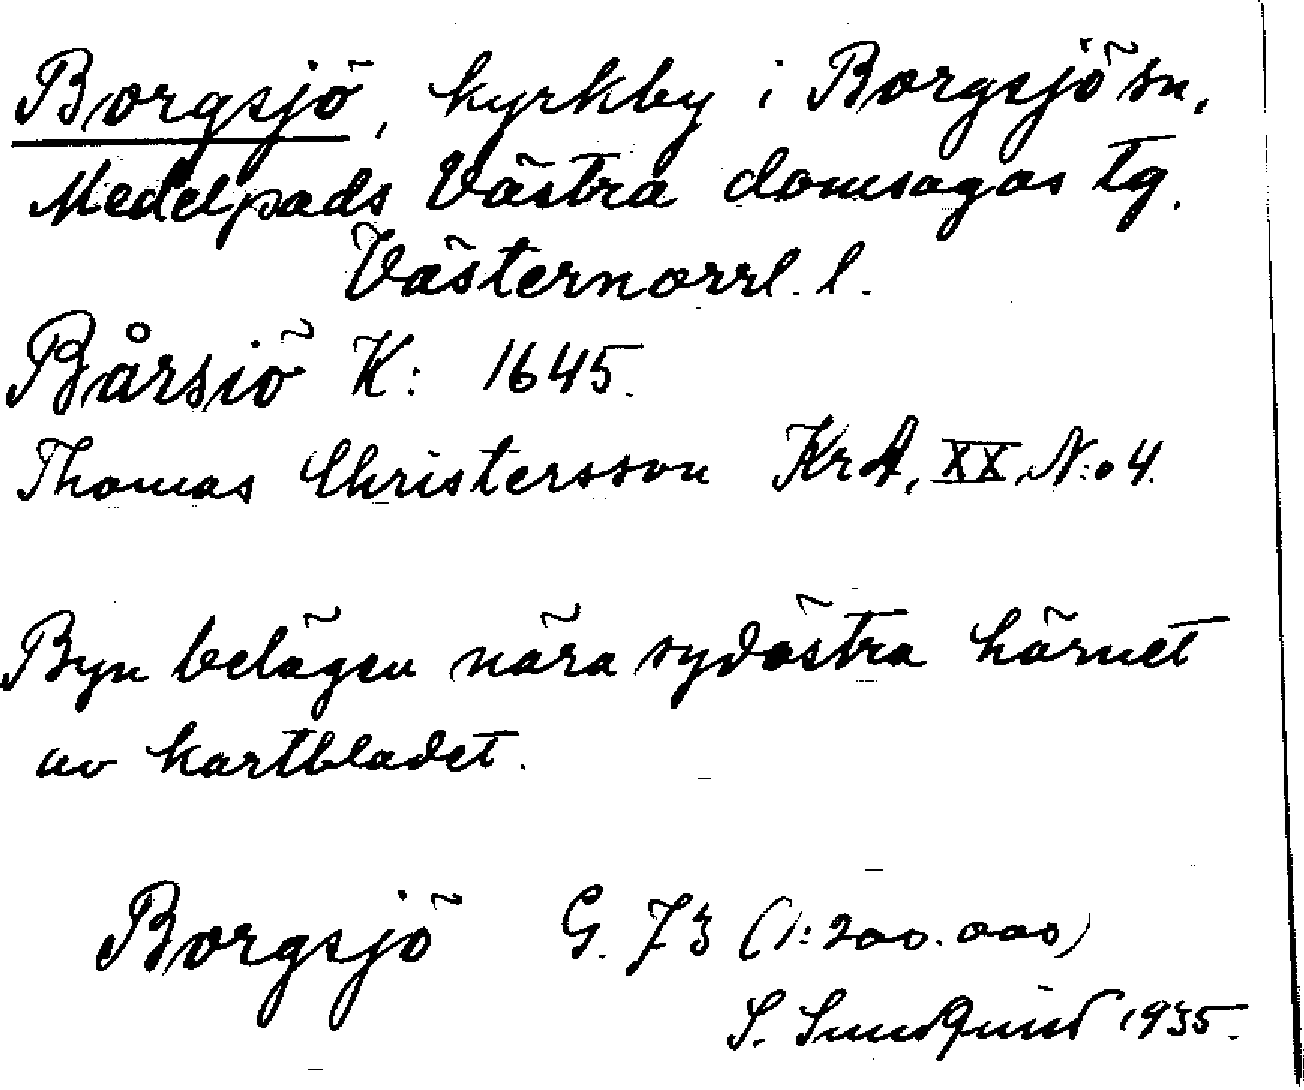 Borgsjö, kyrkby i Borgsjö sn,
Medelpads Västra domsagas tg.
Västernorrl. l.
Bårsiö K: 1645.
Thomas Christersson KrA, XX N:o 4.
Byn belägen nära sydöstra hörnet
av kartbladet.
Borgsjö G. 73 (1:200.000)
S. Sundquist 1935.